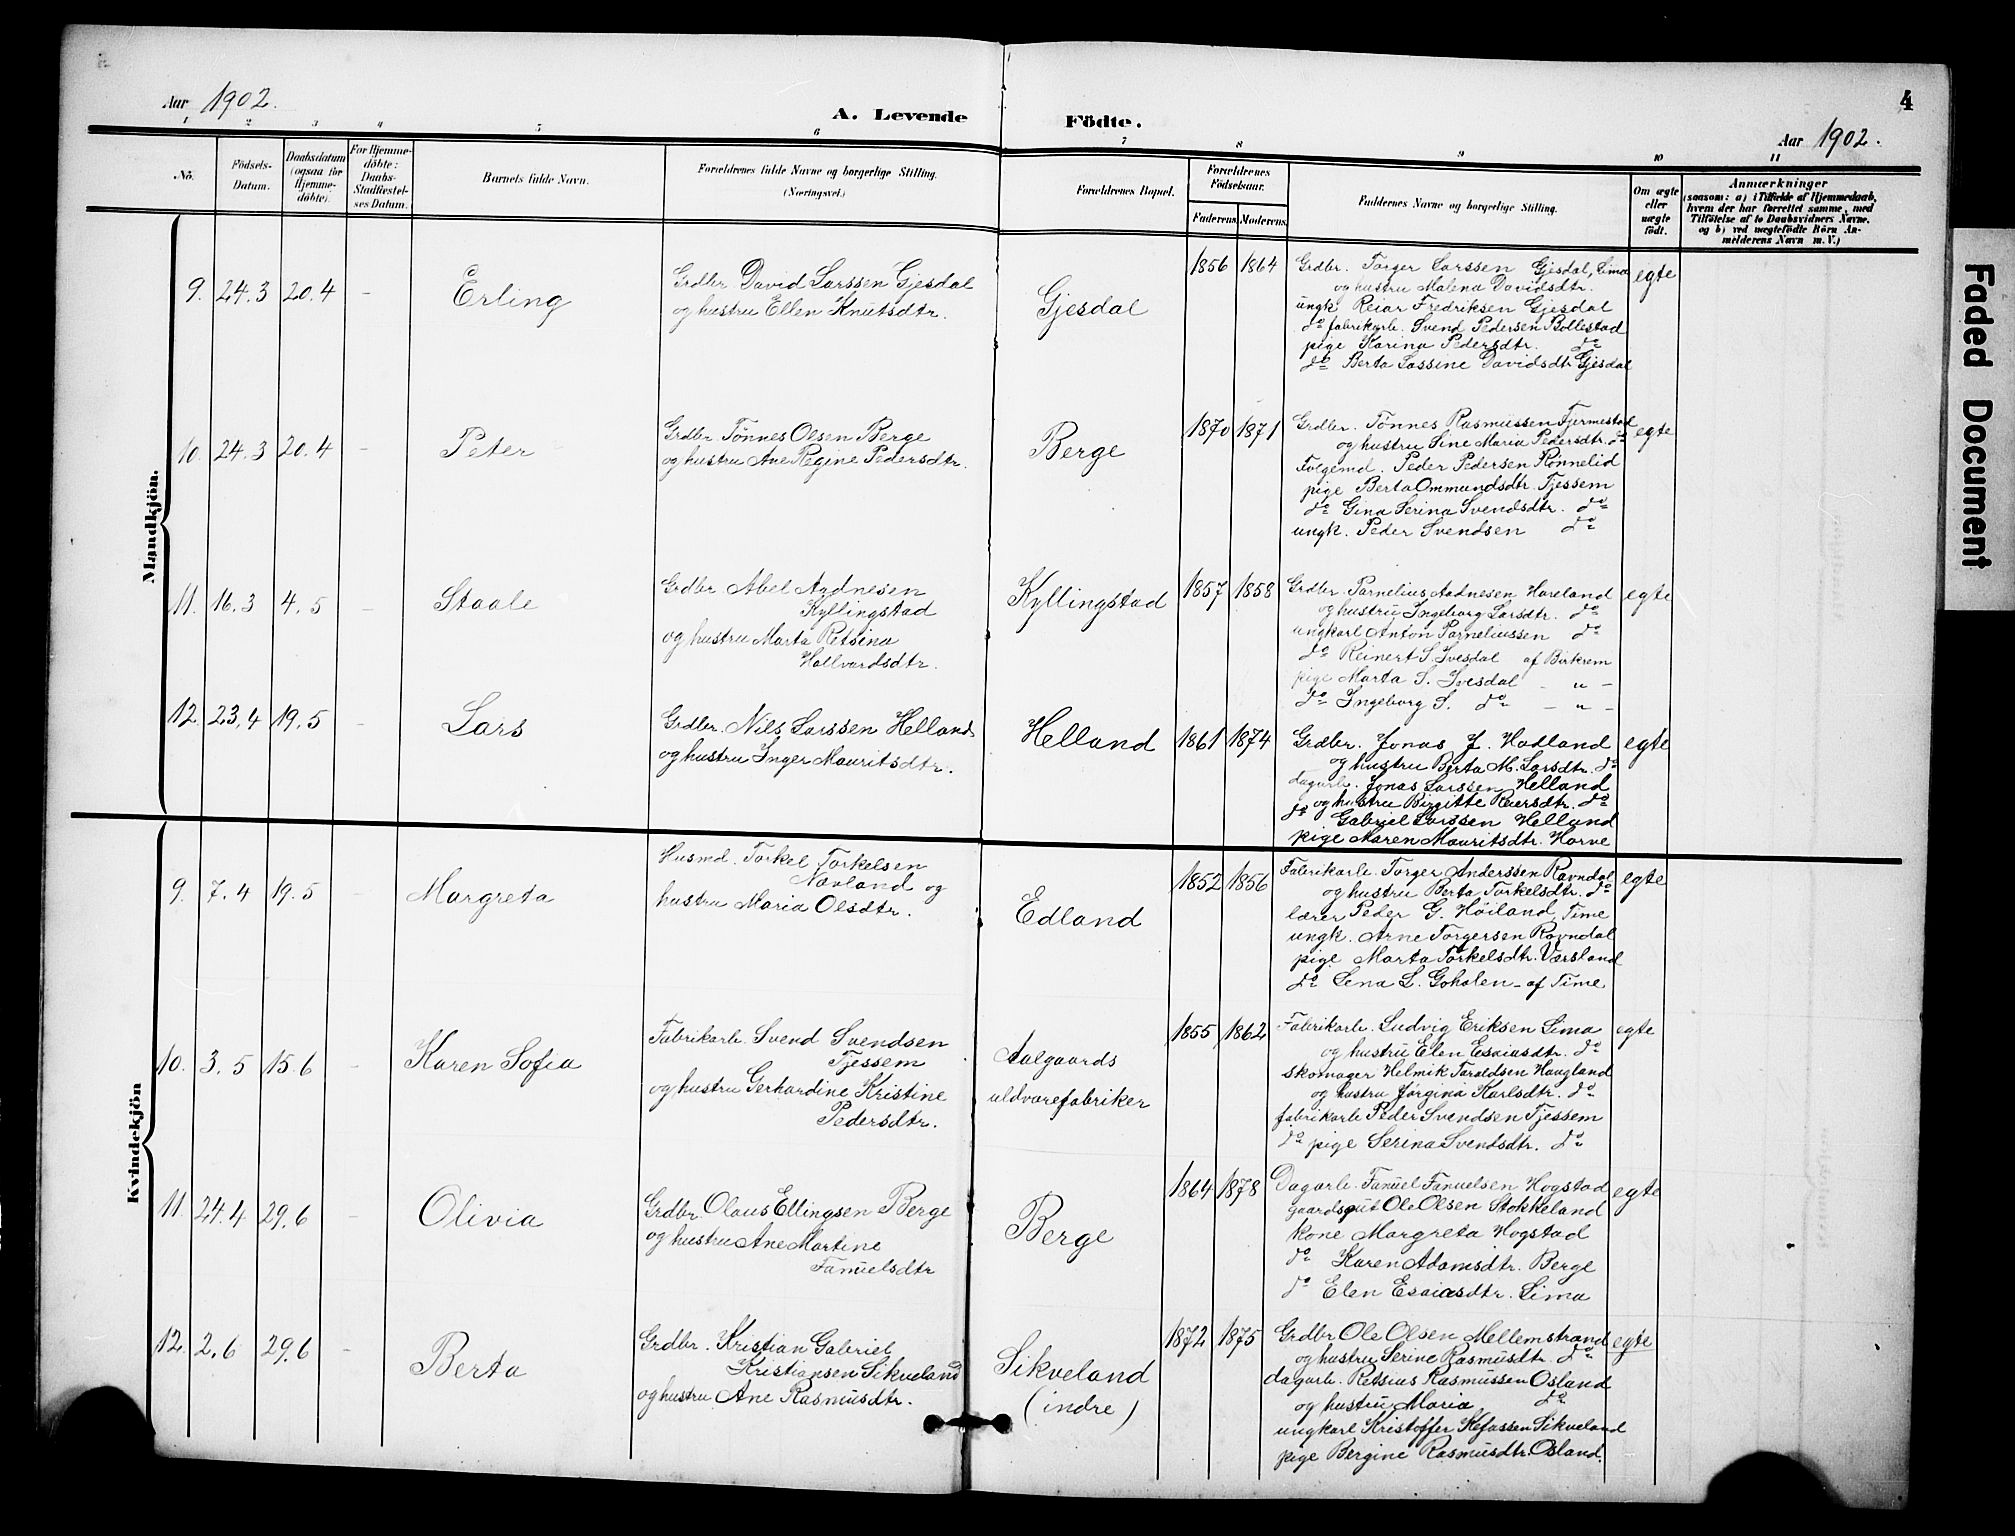 Aar 1902.
A. Levende Födte.
4
Aar 1902.
1 2 3 4 5 6 7 8 9 10 11
No.
Födsels-Datum.
Daabsdatum (ogsaa for Hjemme-döbte).
For Hjemme-döbte: Daabs-Stadfæstel-ses Datum.
Barnets fulde Navn.
Forældrenes fulde Navne og borgerlige Stilling.
(Næringsvei.)
Forældrenes Bopæl.
Forældrenes Födselsaar.
Faderens. Moderens.
Faddernes Navne og borgerlige Stilling.
Om ægte eller uægte födt.
Anmærkninger
(saasom: a) i Tilfælde af Hjemmedaab,
hvem der har forrettet samme, med
Tilföielse af to Daabsvidners Navne.
og b) ved uægtefödte Börn An-
melderens Navn m. V.)
Mandkjön.
9. 24.3 20.4 – Erling
Grdbr. David Larssen Gjesdal
og hustru Ellen Knutsdtr.
Gjesdal
1856 1864
Grdbr. Torger Larssen Gjesdal, Lima
og hustru Malena Davidsdtr.
ungk. Reiar Fredriksen Gjesdal
do fabrikarb. Svend Pedersen Bollestad
pige Karina Pedersdtr. do
do Berta Lassine Davidsdtr Gjesdal
egte
10. 24.3 20.4 – Peter
Grdbr. Tönnes Olsen Berge
og hustru Ane Regine Pedersdtr.
Berge
1870 1871
Grdbr. Tönnes Rasmussen Fjermestad
og hustru Sine Maria Pedersdtr. do
Folgemd. Peder Pedersen Rönnelid
pige Berta Ommundsdtr. Tjessem
do Gina Serina Svendsdtr. do
ungk. Peder Svendsen do
egte
11. 16.3 4.5 – Staale
Grdbr. Abel Aadnesen
Kyllingstad
og hustru Marta Retsina
Hallvardsdtr.
Kyllingstad
1857 1858
Grdbr. Parnelius Aadnesen Haveland
og hustru Ingeborg Larsdtr. do
ungkarl Anton Parneliussen do
do Reinert S. Ivesdal af Birkrem
pige Marta S. Ivesdal – " –
do Ingeborg S. do – " –
egte
12. 23.4 19.5 – Lars
Grdbr. Nils Larssen Helland
og hustru Inger Mauritsdtr.
Helland
1861 1874
Grdbr. Jonas J. Hadland
og hustru Berta M. Larsdtr. do
dagarb. Jonas Larssen Helland
og hustru Birgitte Reiersdtr. do
do Gabriel Larssen Helland
pige Maren Mauritsdtr. Horve
egte
Kvindekjön
9. 7.4 19.5 – Margreta
Husmd. Torkel Torkelsen
Navland og
hustru Maria Olsdtr.
Edland
1852 1856
Fabrikarb. Torger Anderssen Ravndal
og hustru Berta Torkelsdtr. do
lærer Peder G. Höiland, Time
ungk. Arne Torgersen Ravndal
pige Marta Torkelsdtr. Varsland
do Lena L. Goholen – af Time
egte
10. 3.5 15.6 – Karen Sofia
Fabrikarb. Svend Svendsen
Tjessem
og hustru Gerhardine Kristine
Pedersdtr.
Aalgaards
uldvarefabriker
1855 1862
Fabrikarb. Ludvig Eriksen Lima
og hustru Elen Esaiasdtr. do
skomager Helmik Taraldsen Haugland
og hustru Jörgina Karlsdtr. do
fabrikarb. Peder Svendsen Tjessem
do pige Serina Svendsdtr. do
egte
11. 24.4 29.6 – Olivia
Grdbr. Olaus Ellingsen Berge
og hustru Ane Martine
Fanuelsdtr
Berge
1864 1878
Dagarb. Fanuel Fanuelsen Hogstad
gaardsgut Ole Olsen Stokkeland
kone Margreta Hogstad
do Karen Adamsdtr. Berge
do Elen Esaiasdtr. Lima
egte
12. 2.6 29.6 – Berta
Grdbr. Kristian Gabriel
Kristiansen Sikveland
og hustru Ane Rasmusdtr.
Sikveland
(indre)
1872 1875
Grdbr Ole Olsen Mellemstrand
og hustru Serine Rasmusdtr. do
dagarb. Retsius Rasmussen Osland
og hustru Maria do
ungkarl Kristoffer Kefassen Sikveland
pige Bergine Rasmusdtr. Osland.
egte
Faded Document